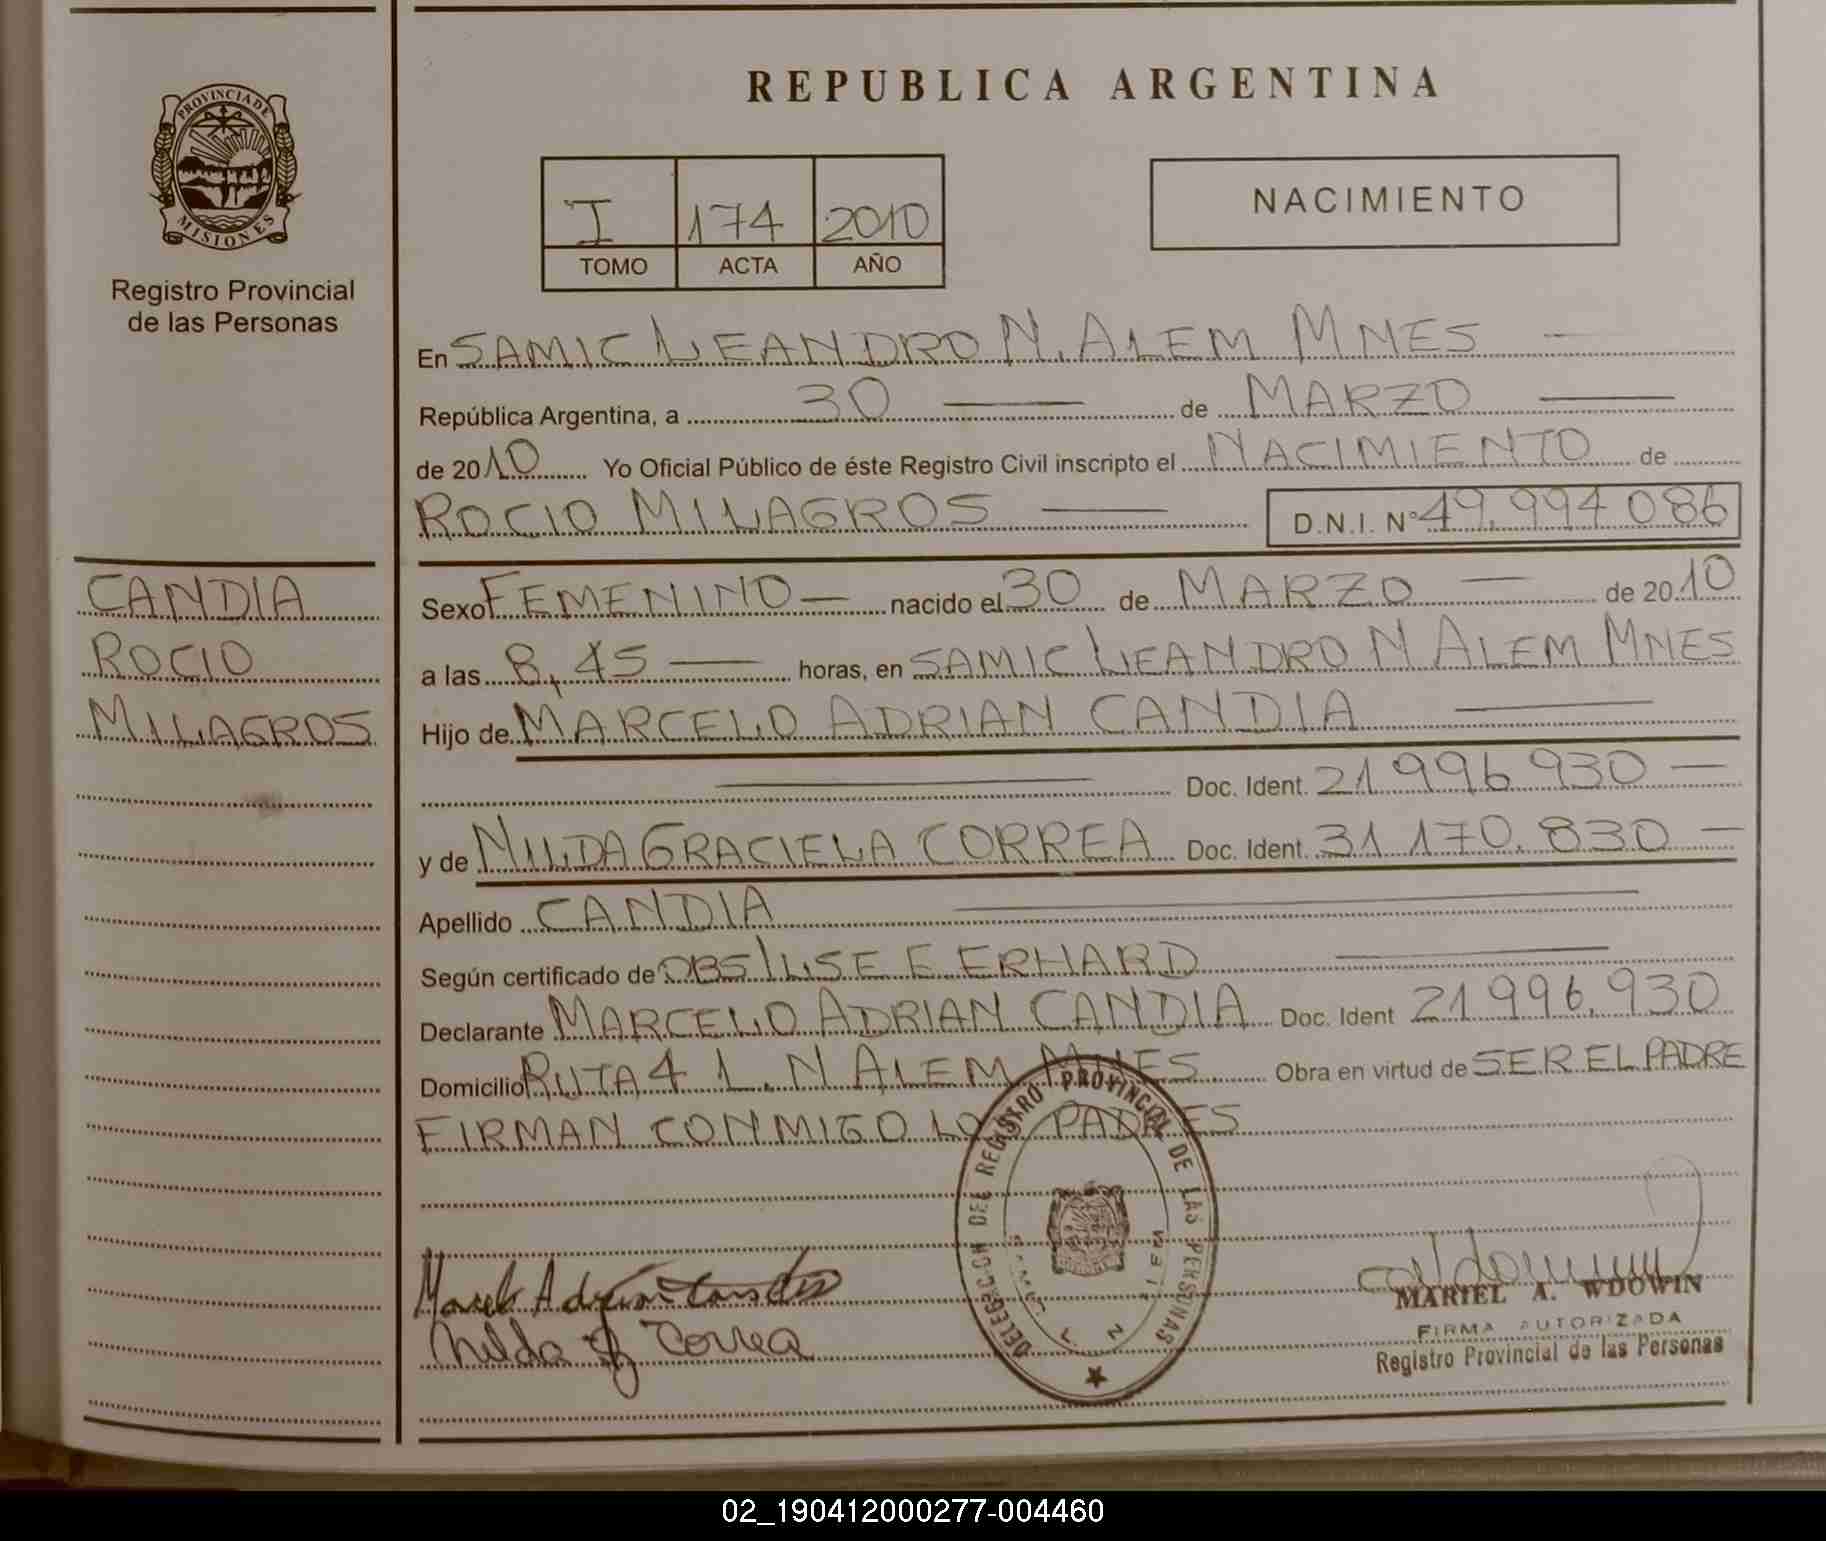 PROVINCIA DE
MISIONES
Registro Provincial
de las Personas
CANDIA
ROCIO
MILAGROS
REPUBLICA ARGENTINA
I 174 2010
TOMO ACTA AÑO
NACIMIENTO
En SAMIC LEANDRO N. ALEM MNES —
República Argentina, a 30 — de MARZO —
de 2010 Yo Oficial Público de éste Registro Civil inscripto el NACIMIENTO de
ROCIO MILAGROS — D.N.I. Nº 49.994.086
Sexo FEMENINO — nacido el 30 de MARZO — de 2010
a las 8,45 — horas, en SAMIC LEANDRO N ALEM MNES
Hijo de MARCELO ADRIAN CANDIA —
— Doc. Ident. 21.996.930 —
y de NILDA GRACIELA CORREA Doc. Ident. 31.170.830 —
Apellido CANDIA —
Según certificado de OBS ILSE E ERHARD —
Declarante MARCELO ADRIAN CANDIA Doc. Ident 21.996.930
Domicilio RUTA 4 L. N ALEM MNES Obra en virtud de SER EL PADRE
FIRMAN CONMIGO LOS PADRES
DELEGACION DEL REGISTRO PROVINCIAL DE LAS PERSONAS
Marcelo Adrian Candia
Nilda G Correa
MARIEL A. WDOWIN
FIRMA AUTORIZADA
Registro Provincial de las Personas
02_190412000277-004460